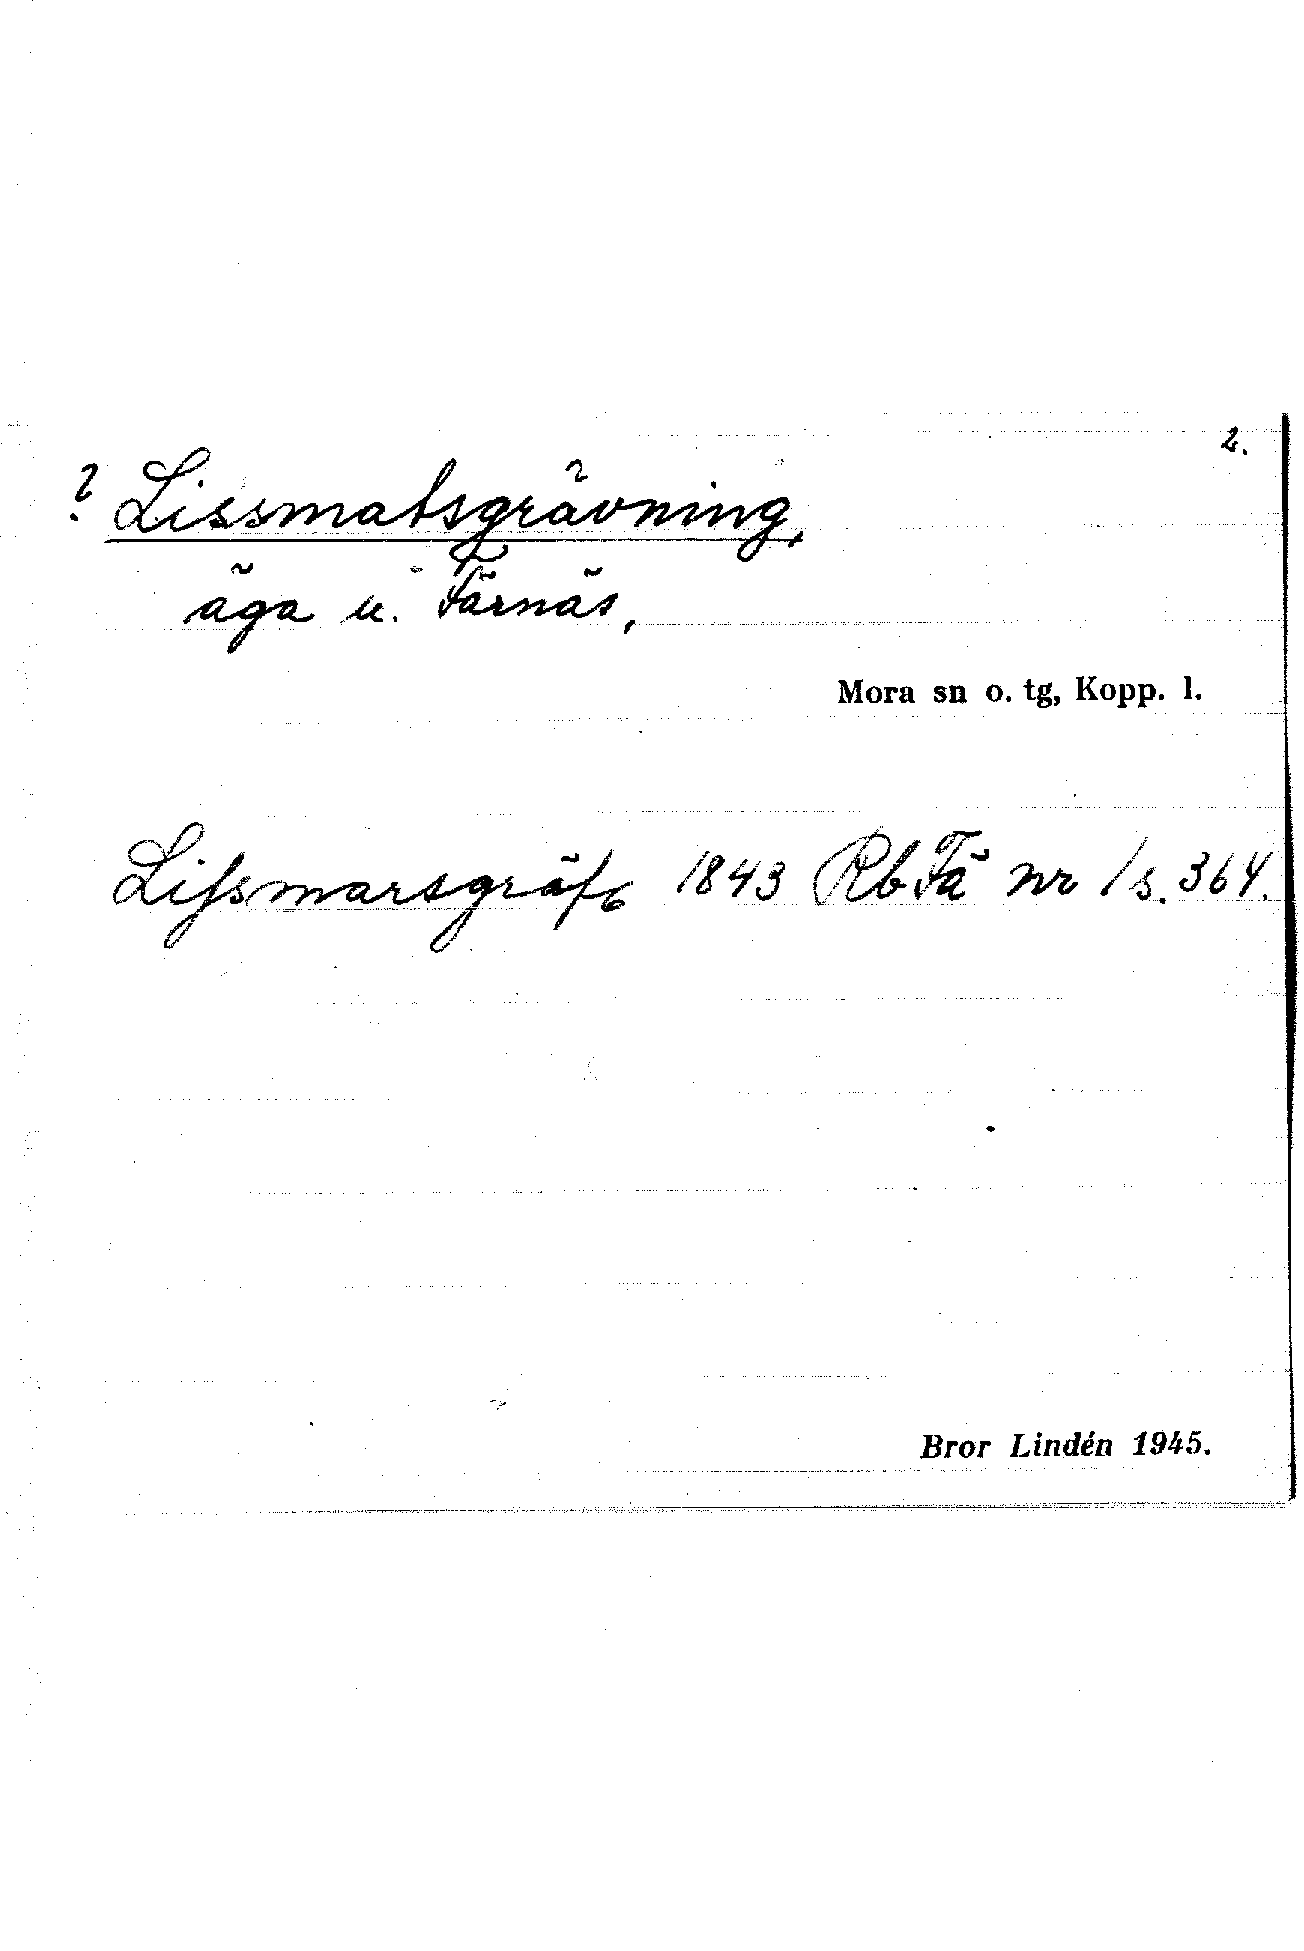 2.
? Lissmatsgrävning,
äga u. Färnäs,
Mora sn o. tg, Kopp. l.
Lissmarsgräfv 1843 RbFä nr 1 s. 364.
Bror Lindén 1945.